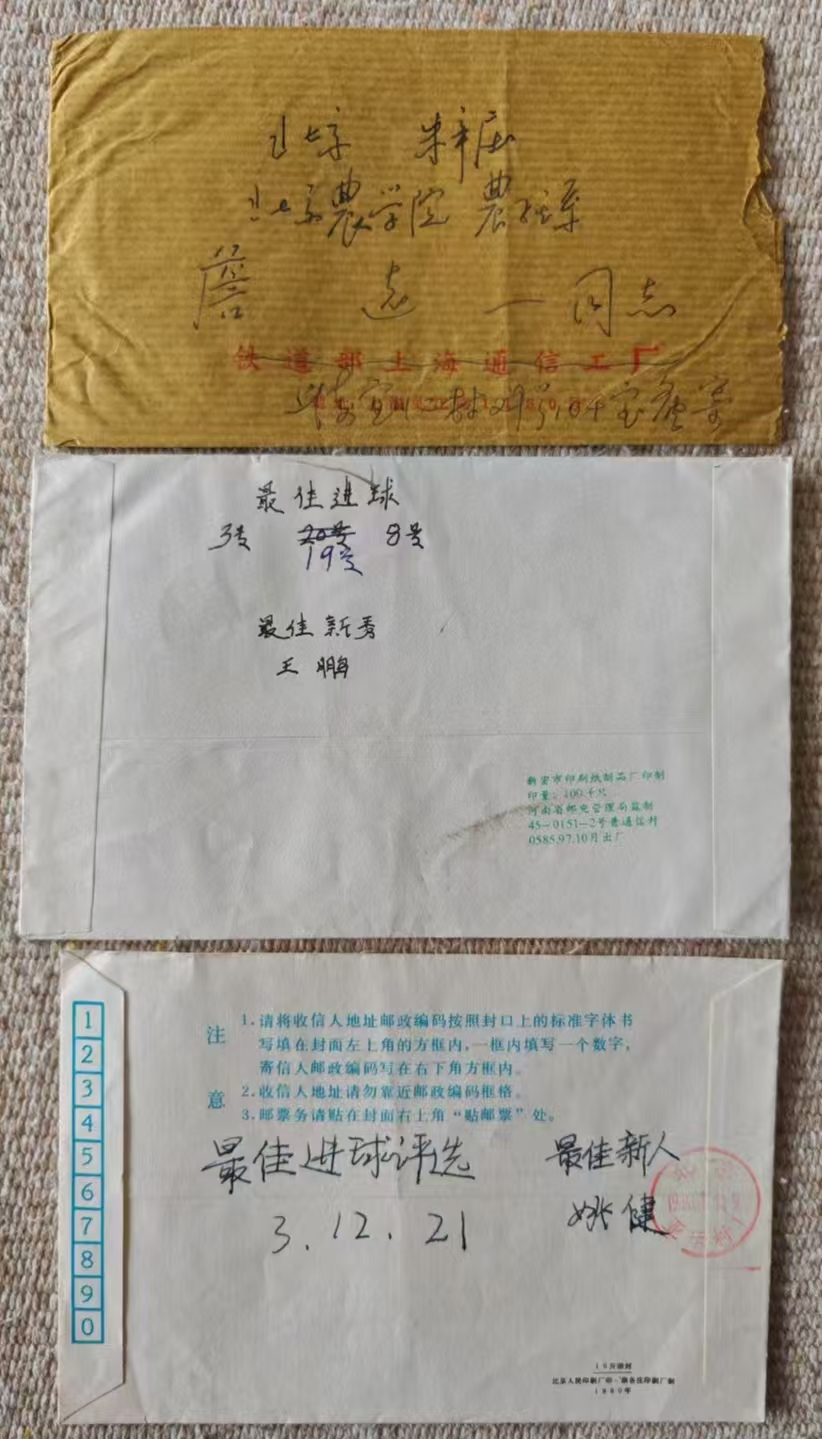 北京 朱辛庄
北京農学院 農放系
詹 志 一 同志
铁道部上海通信工厂
最佳进球
3号 20号 8号
19号
最佳新秀
王鹏
新密市印刷纸制品厂印制
印量：100千只
河南省邮电管理局监制
45-0151-2号普通信封
0585.97.10月出厂
1
2
3
4
5
6
7
8
9
0
注意
1.请将收信人地址邮政编码按照封口上的标准字体书
写填在封面左上角的方框内，一框内填写一个数字，
寄信人邮政编码写在右下角方框内。
2.收信人地址请勿靠近邮政编码框格。
3.邮票务请贴在封面右上角“贴邮票”处。
最佳进球评选 最佳新人
3.12.21 姚健